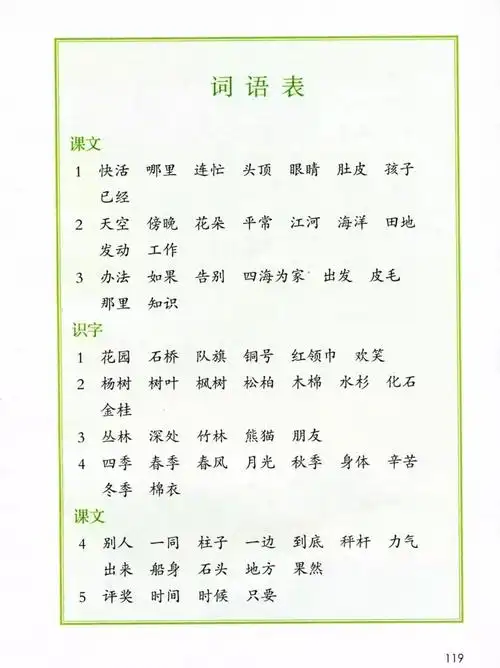 词语表
课文
1 快活 哪里 连忙 头顶 眼睛 肚皮 孩子
已经
2 天空 傍晚 花朵 平常 江河 海洋 田地
发动 工作
3 办法 如果 告别 四海为家 出发 皮毛
那里 知识
识字
1 花园 石桥 队旗 铜号 红领巾 欢笑
2 杨树 树叶 枫树 松柏 木棉 水杉 化石
金桂
3 丛林 深处 竹林 熊猫 朋友
4 四季 春季 春风 月光 秋季 身体 辛苦
冬季 棉衣
课文
4 别人 一同 柱子 一边 到底 秤杆 力气
出来 船身 石头 地方 果然
5 评奖 时间 时候 只要
119